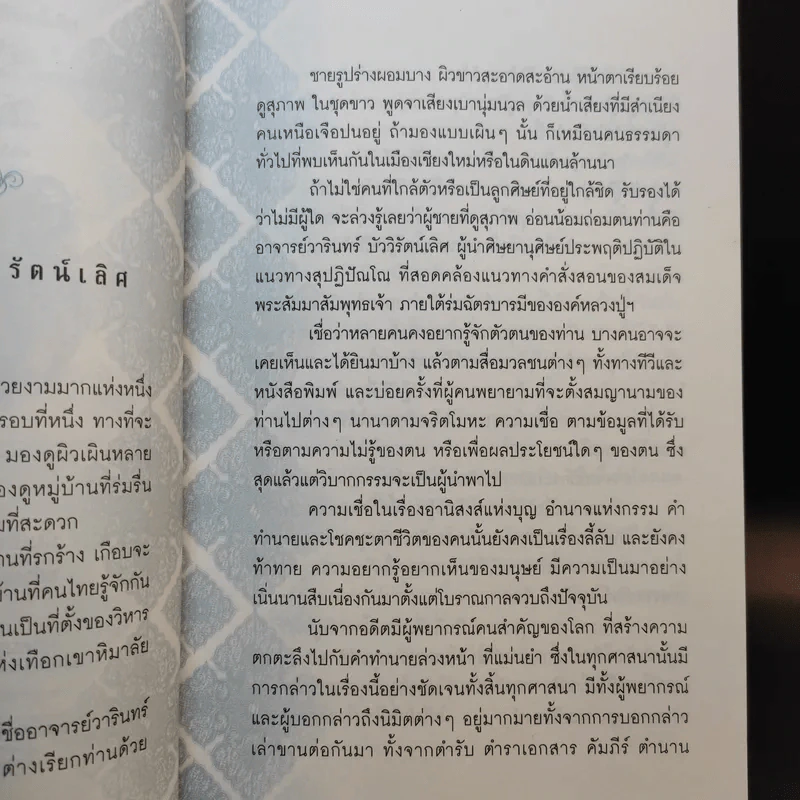 รัตน์เลิศ
วยงามมากแห่งหนึ่ง
รอบที่หนึ่ง ทางที่จะ
มองดูผิวเผินหลาย
องดูหมู่บ้านที่ร่มรื่น
มที่สะดวก
านที่รกร้าง เกือบจะ
บ้านที่คนไทยรู้จักกัน
นเป็นที่ตั้งของวิหาร
ห่งเทือกเขาหิมาลัย
ชื่ออาจารย์วารินทร์
ต่างเรียกท่านด้วย
ชายรูปร่างผอมบาง ผิวขาวสะอาดสะอ้าน หน้าตาเรียบร้อย
ดูสุภาพ ในชุดขาว พูดจาเสียงเบานุ่มนวล ด้วยน้ำเสียงที่มีสำเนียง
คนเหนือเจือปนอยู่ ถ้ามองแบบเผินๆ นั้น ก็เหมือนคนธรรมดา
ทั่วไปที่พบเห็นกันในเมืองเชียงใหม่หรือในดินแดนล้านนา
ถ้าไม่ใช่คนที่ใกล้ตัวหรือเป็นลูกศิษย์ที่อยู่ใกล้ชิด รับรองได้
ว่าไม่มีผู้ใด จะล่วงรู้เลยว่าผู้ชายที่ดูสุภาพ อ่อนน้อมถ่อมตนท่านคือ
อาจารย์วารินทร์ บัววิรัตน์เลิศ ผู้นำศิษยานุศิษย์ประพฤติปฏิบัติใน
แนวทางสุปฏิปัณโณ ที่สอดคล้องแนวทางคำสั่งสอนของสมเด็จ
พระสัมมาสัมพุทธเจ้า ภายใต้ร่มฉัตรบารมีขององค์หลวงปู่ฯ
เชื่อว่าหลายคนคงอยากรู้จักตัวตนของท่าน บางคนอาจจะ
เคยเห็นและได้ยินมาบ้าง แล้วตามสื่อมวลชนต่างๆ ทั้งทางทีวีและ
หนังสือพิมพ์ และบ่อยครั้งที่ผู้คนพยายามที่จะตั้งสมญานามของ
ท่านไปต่างๆ นานาตามจริตโมหะ ความเชื่อ ตามข้อมูลที่ได้รับ
หรือตามความไม่รู้ของตน หรือเพื่อผลประโยชน์ใดๆ ของตน ซึ่ง
สุดแล้วแต่วิบากกรรมจะเป็นผู้นำพาไป
ความเชื่อในเรื่องอานิสงส์แห่งบุญ อำนาจแห่งกรรม คำ
ทำนายและโชคชะตาชีวิตของคนนั้นยังคงเป็นเรื่องลี้ลับ และยังคง
ท้าทาย ความอยากรู้อยากเห็นของมนุษย์ มีความเป็นมาอย่าง
เนิ่นนานสืบเนื่องกันมาตั้งแต่โบราณกาลจวบถึงปัจจุบัน
นับจากอดีตมีผู้พยากรณ์คนสำคัญของโลก ที่สร้างความ
ตกตะลึงไปกับคำทำนายล่วงหน้า ที่แม่นยำ ซึ่งในทุกศาสนานั้นมี
การกล่าวในเรื่องนี้อย่างชัดเจนทั้งสิ้นทุกศาสนา มีทั้งผู้พยากรณ์
และผู้บอกกล่าวถึงนิมิตต่างๆ อยู่มากมายทั้งจากการบอกกล่าว
เล่าขานต่อกันมา ทั้งจากตำรับ ตำราเอกสาร คัมภีร์ ตำนาน